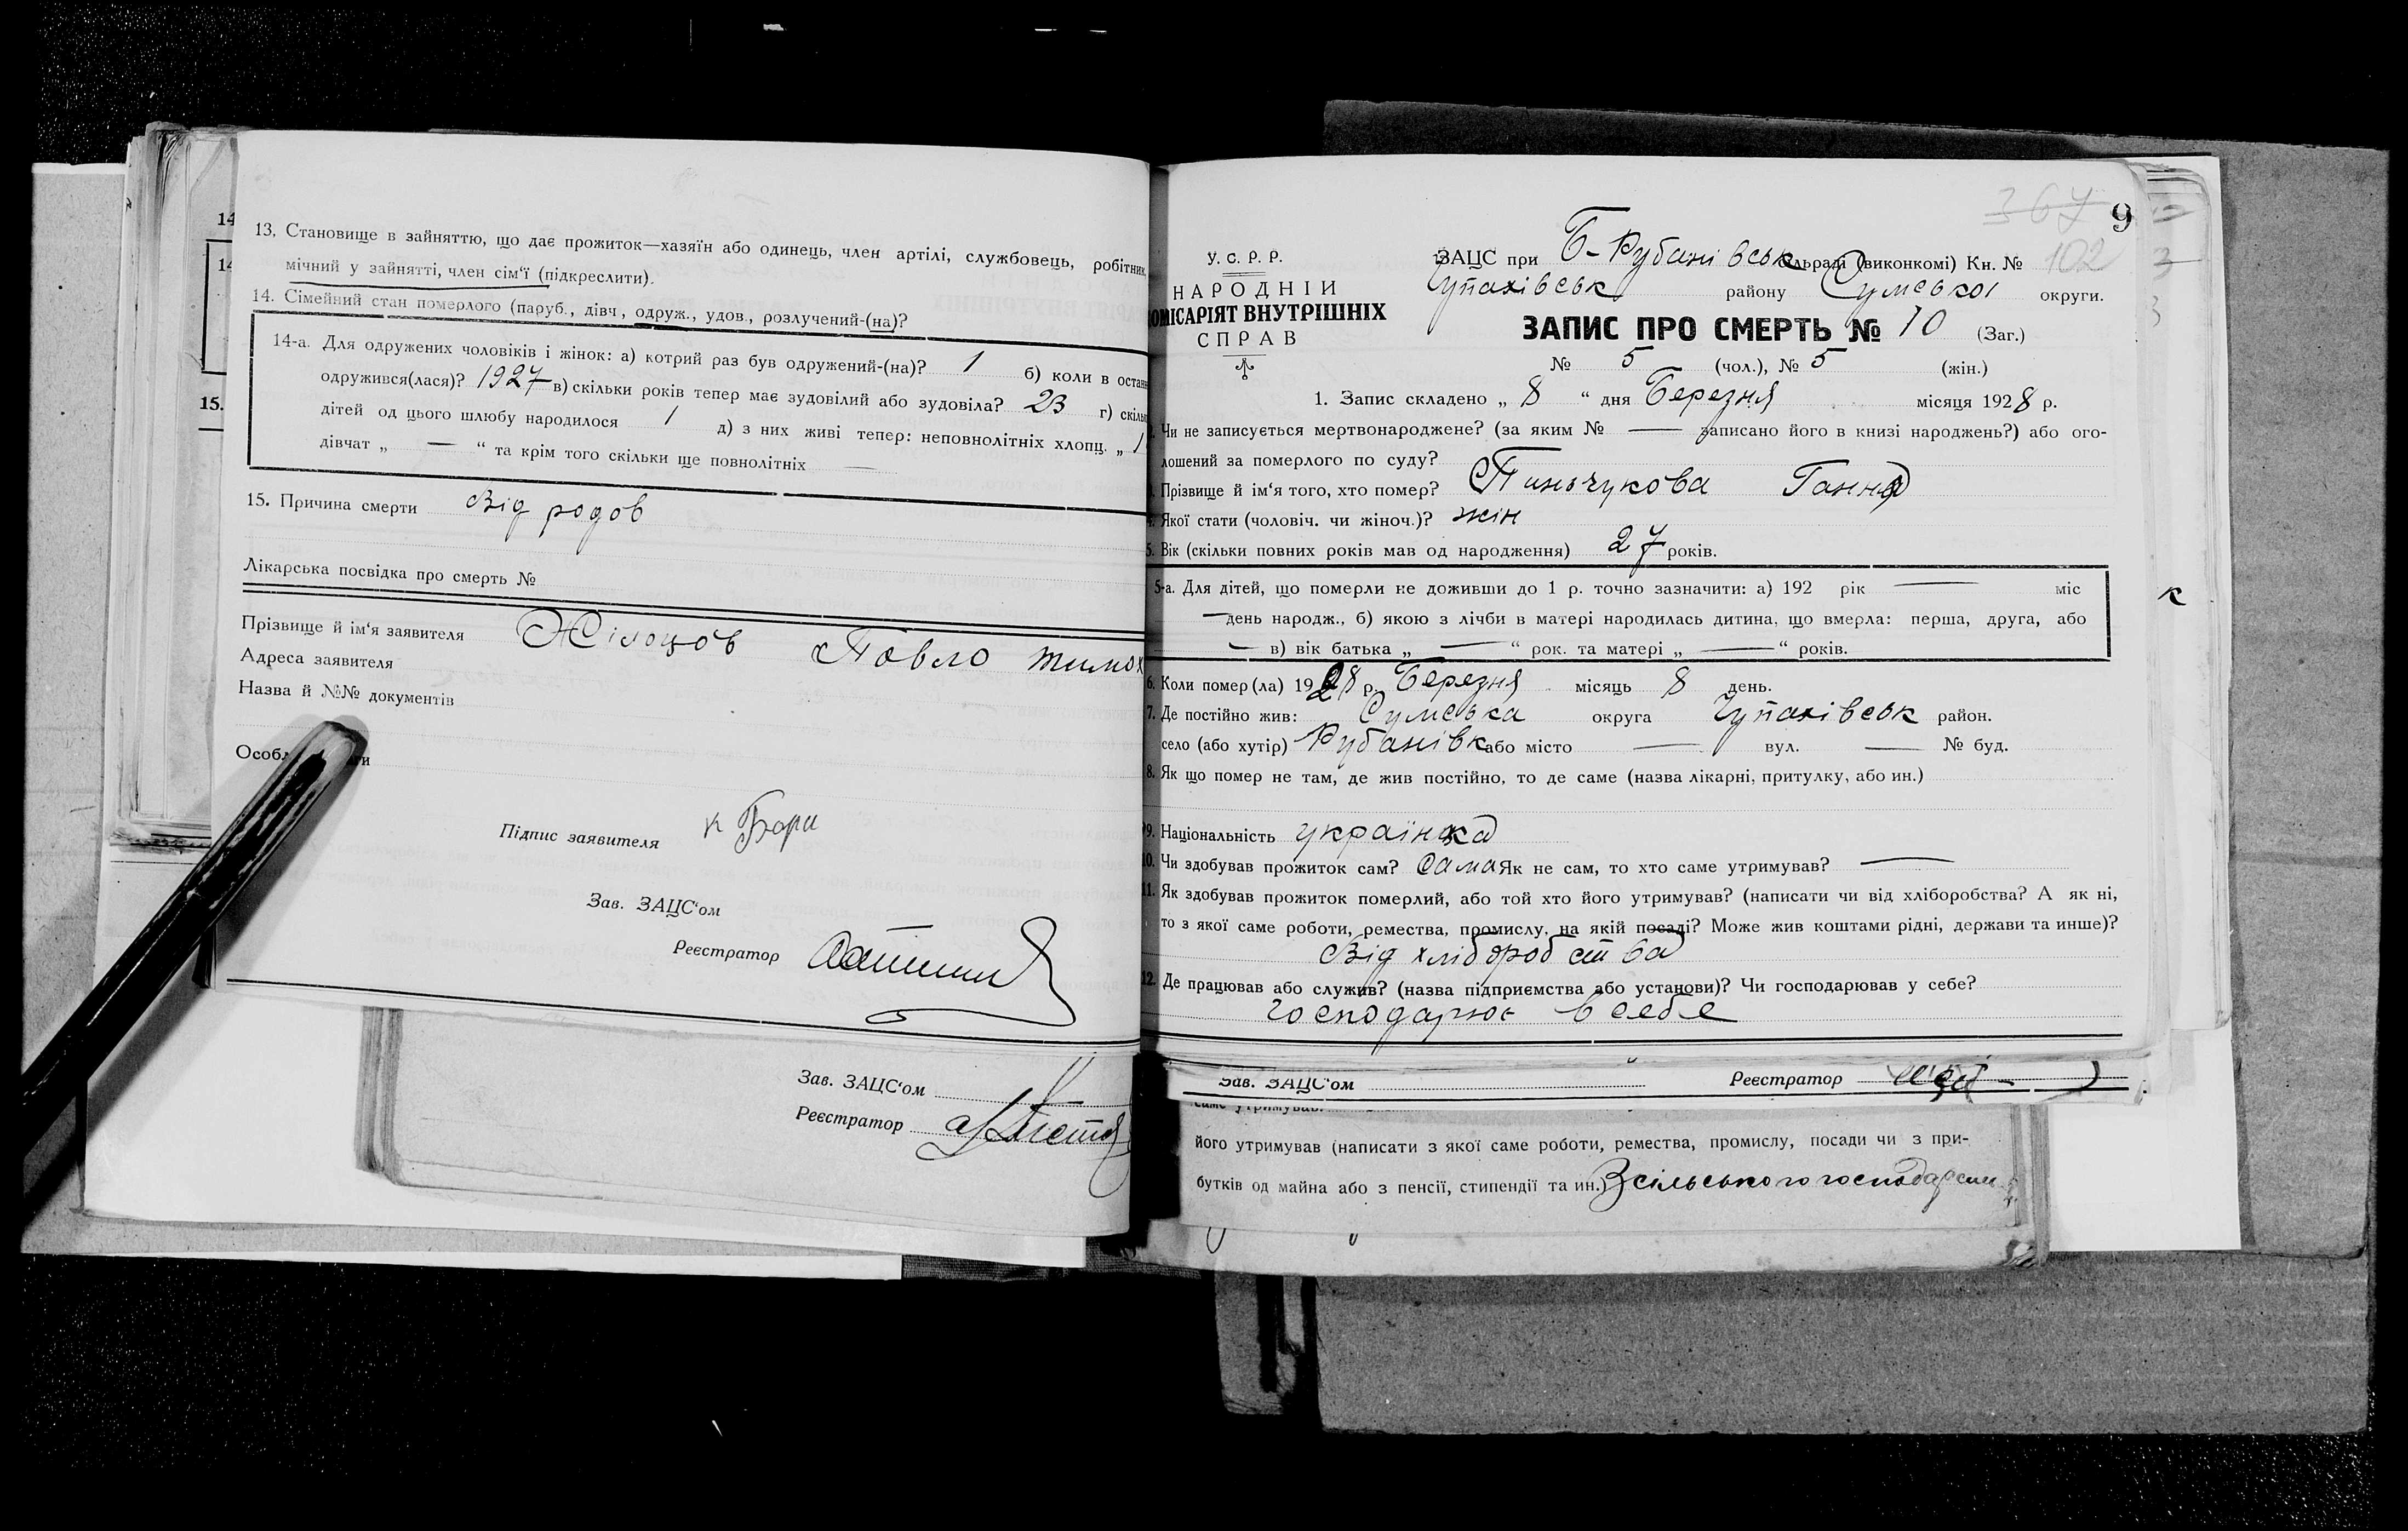 14
14
15.
13. Становище в зайняттю, що дає прожиток—хазяїн або одинець, член артілі, службовець, робітник,
мічний у зайнятті, член сім'ї (підкреслити).
14. Сімейний стан померлого (паруб., дівч., одруж., удов., розлучений-(на)?
14-а. Для одружених чоловіків і жінок: а) котрий раз був одружений-(на)? 1 б) коли в остан
одружився(лася)? 1927 в) скільки років тепер має зудовілий або зудовіла? 23 г) скільк
дітей од цього шлюбу народилося 1 д) з них живі тепер: неповнолітніх хлопц. „ 1
дівчат „ — “ та крім того скільки ще повнолітніх —
15. Причина смерти Від родов
Лікарська посвідка про смерть №
Прізвище й ім'я заявителя Павло тимох
Адреса заявителя
Назва й №№ документів
Особл
Підпис заявителя
Зав. ЗАЦС‘ом
Реєстратор
Зав. ЗАЦС‘ом
Реєстратор
367 9
102
У. С. Р. Р.
НАРОДНІЙ
КОМІСАРІЯТ ВНУТРІШНІХ
СПРАВ
ЗАЦС при Б-Рубанівськ сільраді (виконкомі) Кн. №
Чупахівськ району Сумської округи.
ЗАПИС ПРО СМЕРТЬ № 10 (Заг.)
№ 5 (чол.), № 5 (жін.)
1. Запис складено „ 8 “ дня Березня місяця 1928 р.
Чи не записується мертвонароджене? (за яким № — записано його в книзі народжень?) або ого-
лошений за померлого по суду?
Прізвище й ім‘я того, хто помер? Пинчукова Ганна
Якої стати (чоловіч. чи жіноч.)? жін
5. Вік (скільки повних років мав од народження) 27 років.
5-а. Для дітей, що померли не доживши до 1 р. точно зазначити: а) 192 рік — міс
— день народж., б) якою з лічби в матері народилась дитина, що вмерла: перша, друга, або
— в) вік батька „ — “ рок. та матері „ — “ років.
6. Коли помер(ла) 1928 р. Березня місяць 8 день.
7. Де постійно жив: Сумська округа Чупахівськ район.
село (або хутір) Рубанівк або місто — вул. — № буд.
8. Як що помер не там, де жив постійно, то де саме (назва лікарні, притулку, або ин.)
9. Національність українка
10. Чи здобував прожиток сам? Сама Як не сам, то хто саме утримував? —
11. Як здобував прожиток померлий, або той хто його утримував? (написати чи від хліборобства? А як ні,
то з якої саме роботи, ремества, промислу, на якій посаді? Може жив коштами рідні, держави та инше)?
Від хліборобства
12. Де працював або служив? (назва підприємства або установи)? Чи господарював у себе?
Господарює в себе
Зав. ЗАЦС‘ом Реєстратор
саме утримував.
його утримував (написати з якої саме роботи, ремества, промислу, посади чи з при-
бутків од майна або з пенсії, стипендії та ин.) З сільського господарств